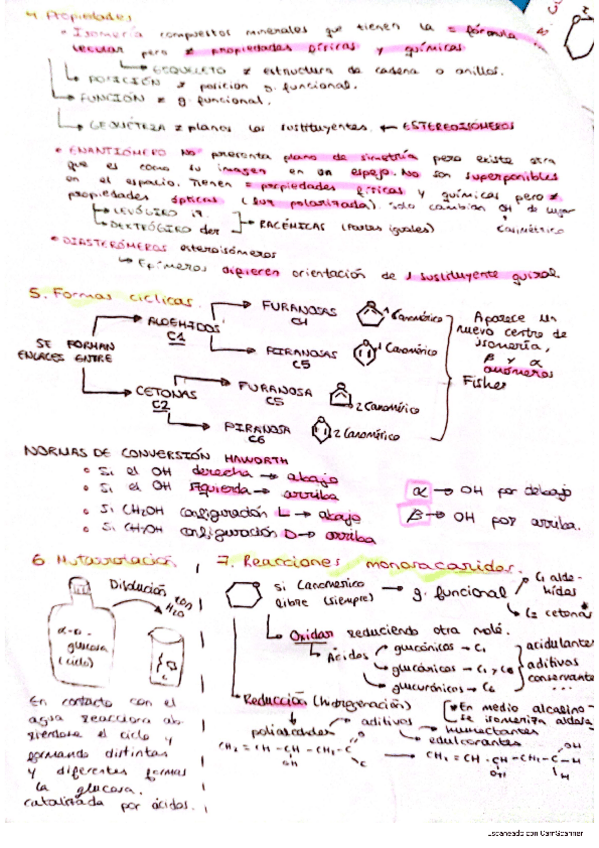 4. Propiedades
• Isomería compuestos minerales que tienen la = fórmula
lecular pero ≠ propiedades físicas y químicas
ESQUELETO ≠ estructura de cadena o anillos.
POSICIÓN ≠ posición g. funcional.
FUNCIÓN ≠ g. funcional.
GEOMÉTRIA ≠ planos los sustituyentes. ← ESTEREOISÓMEROS
• ENANTIÓMERO No presenta plano de simetría pero existe otra
que es como su imagen en un espejo. No son superponibles
en el espacio. Tienen = propiedades físicas y químicas pero ≠
propiedades ópticas (luz polarizada). Solo cambian OH de lugar
LEVÓGIRO
DEXTRÓGIRO der
RACÉMICAS (Partes iguales)
Casimétrico
• DIASTERÓMEROS esteroisómeros
Epímeros difieren orientación de 1 sustituyente quiral
5. Formas cíclicas.
SE FORMAN
ENLACES ENTRE
ALDEHIDOS
C1
FURANOSAS
C4
1 Canomérico
PIRANOSAS
C5
1 Canomérico
CETONAS
C2
FURANOSA
C5
2 Canomérico
PIRANOSA
C6
2 Canomérico
Aparece un
nuevo centro de
isomería,
β y α
anómeros
Fisher
NORMAS DE CONVERSIÓN HAWORTH
• Si el OH derecha → abajo
• Si el OH Izquierda → arriba
• Si CH2OH configuración L → abajo
• Si CH2OH configuración D → arriba
α → OH por debajo
β → OH por arriba.
6 Mutarrotación
Disolución con
H2O
α-D-
glucosa
(ciclo)
En contacto con el
agua reacciona ab
riendose el ciclo y
formando distintas
y diferentes formas
la glucosa.
catalizada por ácidos.
7. Reacciones monosacaridos.
si Canomerico
libre (siempre)
→ g. funcional
C1 alde-
hídos
C2 cetonas
Oxidar reduciendo otra molé.
Ácidos
glucónicos → C1
glucáricos → C1 y C6
glucurónicos → C6
acidulantes
aditivos
conservante
...
Reducción (hidrogenación)
polialcoholes
aditivos
humectantes
edulcorantes
• En medio alcalino
se isomeriza aldosa
CH2 = CH - CH - CH2 - C
OH
CH2 = CH - CH - CH2 - C - H
OH
OH
Escaneado con CamScanner